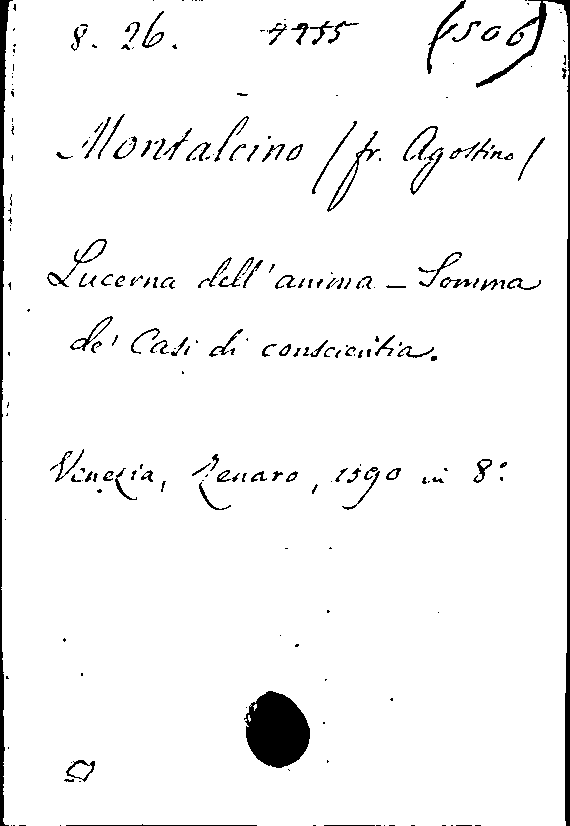 8. 26. 4255 (1506)
Montalcino / fr. Agostino /
Lucerna dell'anima – Somma
de' Casi di conscientia.
Venezia, Zenaro, 1590 in 8: